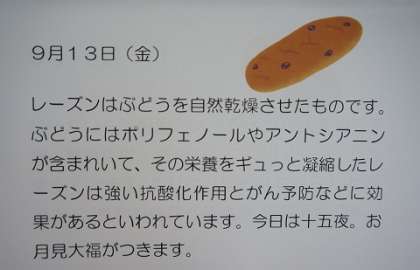 ９月１３日（金）
レーズンはぶどうを自然乾燥させたものです。
ぶどうにはポリフェノールやアントシアニン
が含まれいて、その栄養をギュっと凝縮したレ
ーズンは強い抗酸化作用とがん予防などに効
果があるといわれています。今日は十五夜。お
月見大福がつきます。